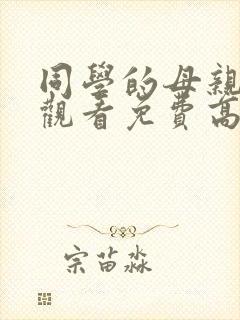 同學的母親
觀看免費高
宗苗淼